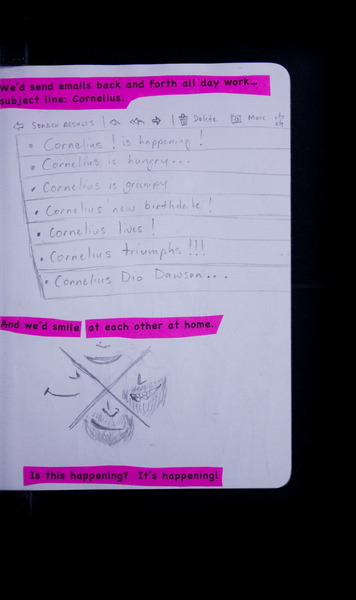 We'd send emails back and forth all day work...
subject line: Cornelius.
Search results Delete More
Cornelius! is happening!
Cornelius is hungry...
Cornelius is grumpy
Cornelius' new birthdate!
Cornelius lives!
Cornelius triumphs!!!
Cornelius Dio Dawson...
And we'd smile at each other at home.
Is this happening? It's happening!